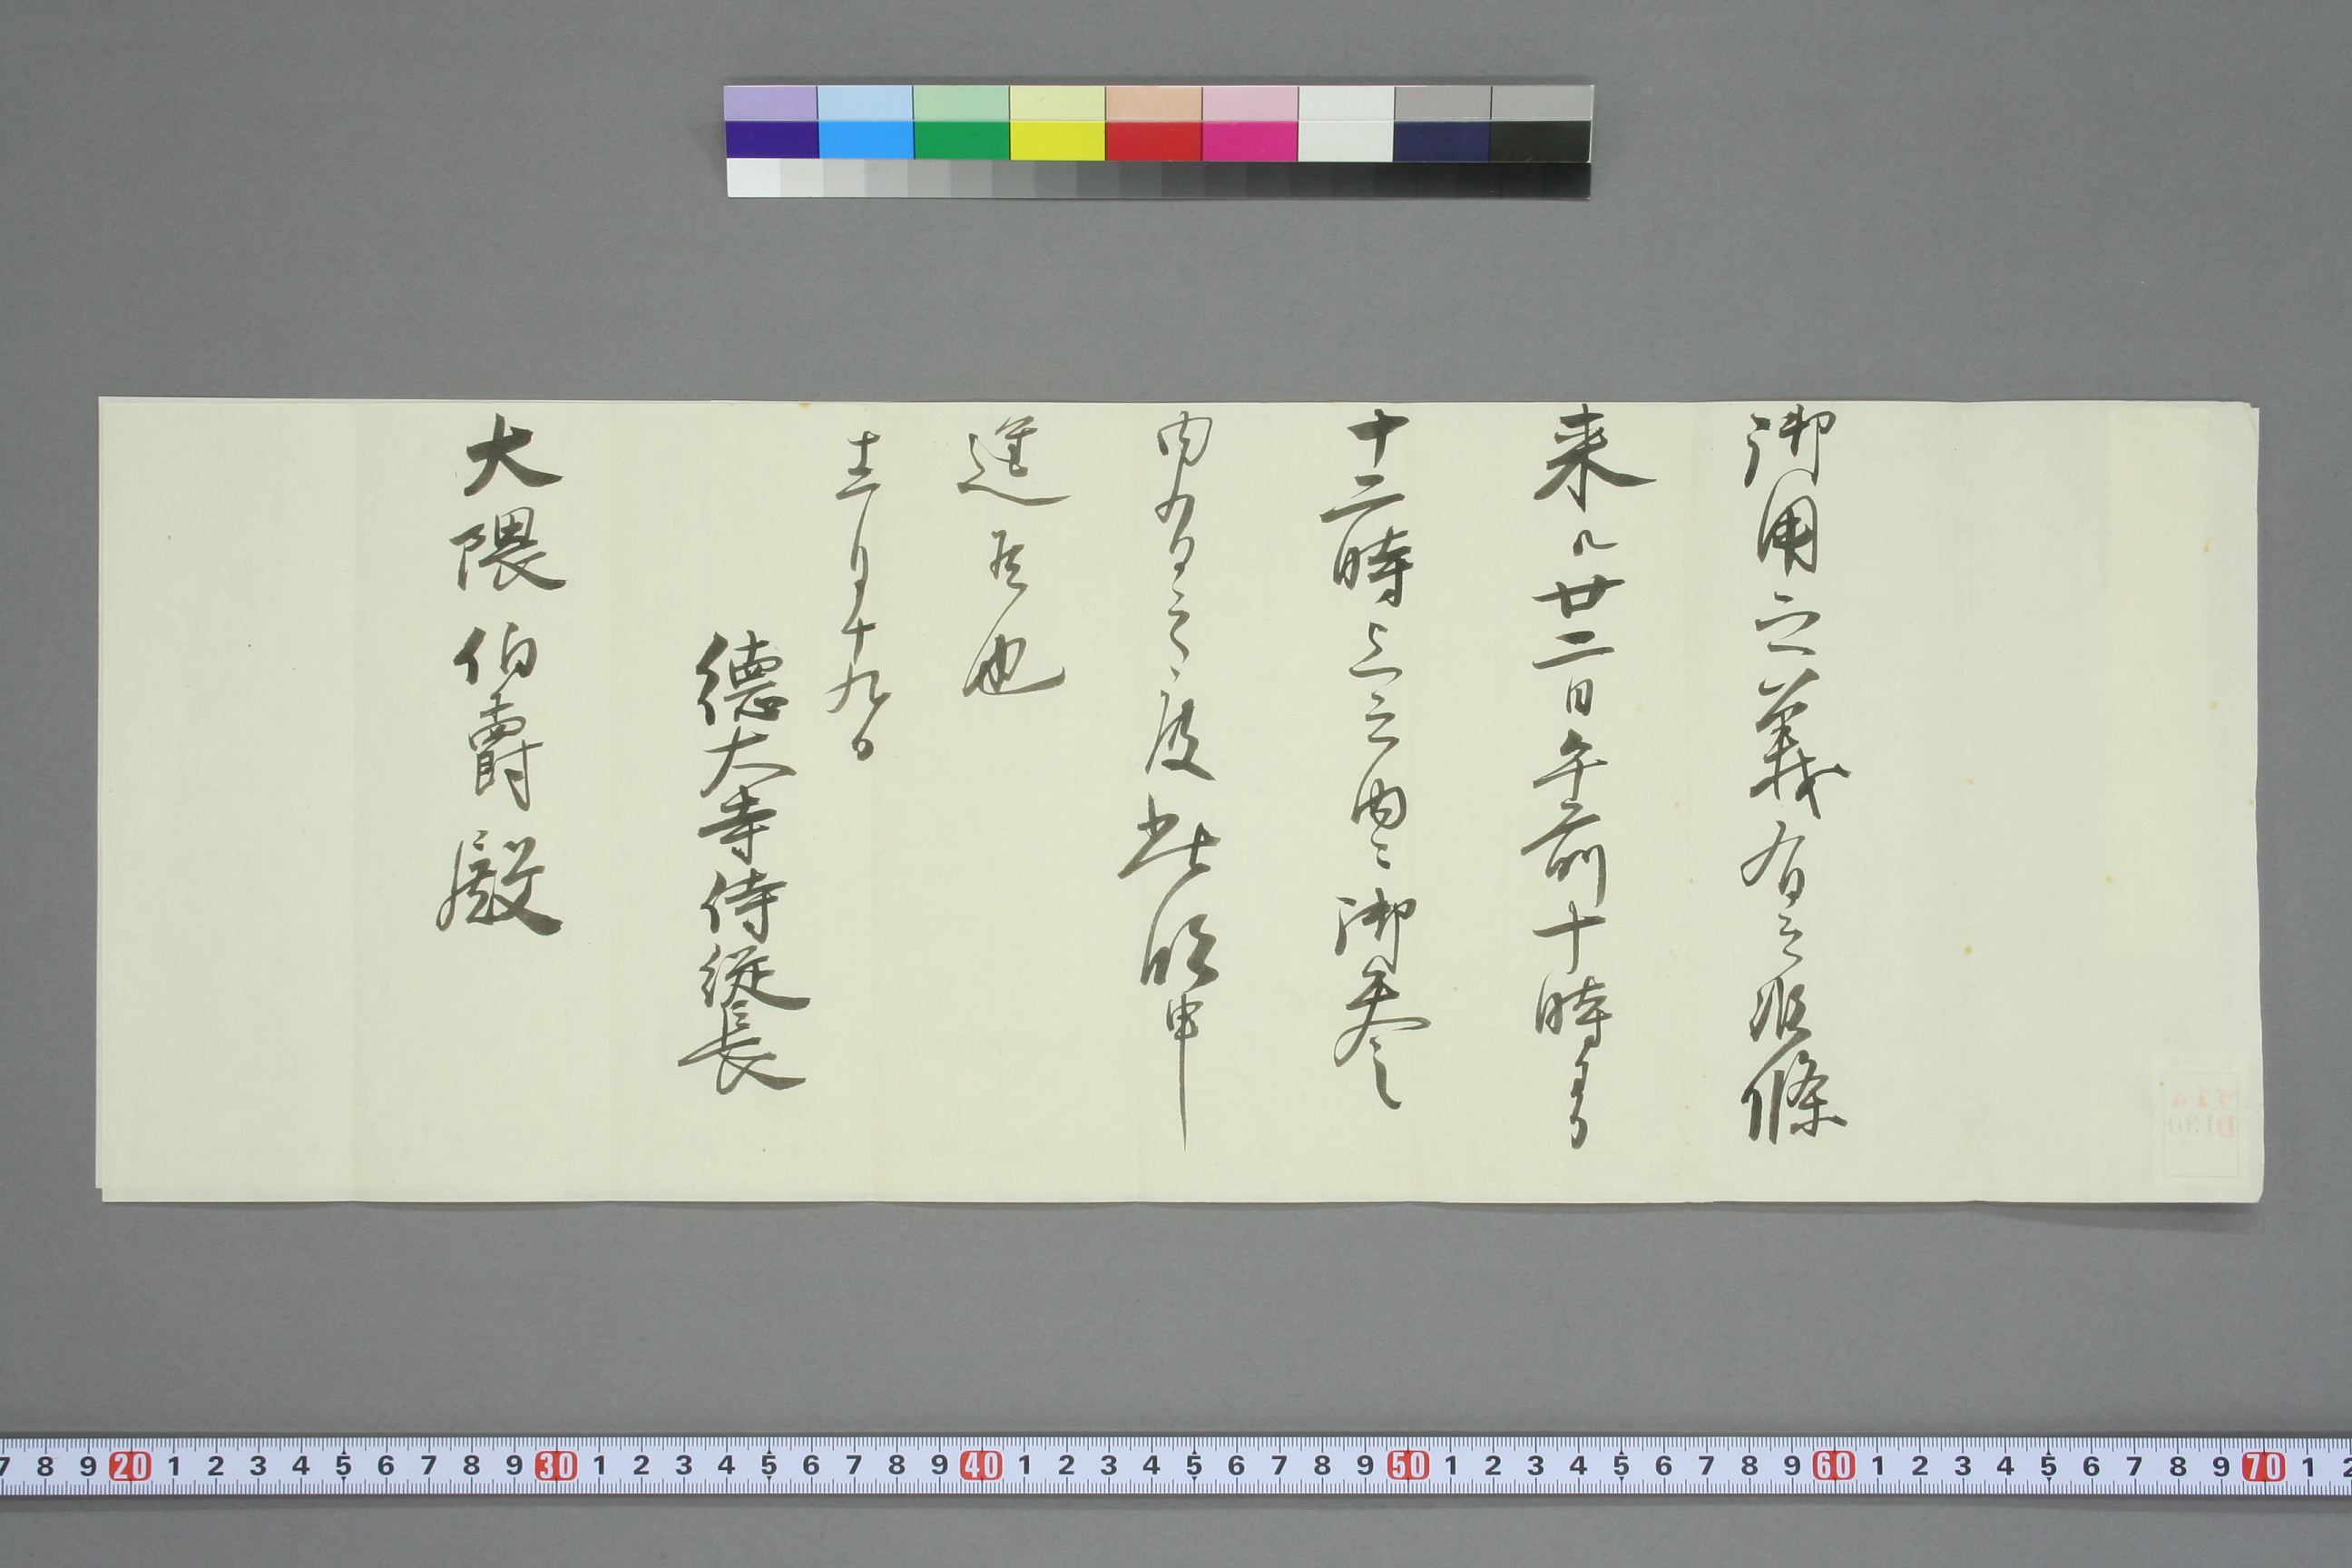 御用之義有之候條
来ル廿二日午前十時ゟ
十二時迄之内ニ御参
内有之度此段申
進候也
十二月十九日
德大寺侍従長
大隈伯爵殿
114
D130
7 8 9 20 1 2 3 4 5 6 7 8 9 30 1 2 3 4 5 6 7 8 9 40 1 2 3 4 5 6 7 8 9 50 1 2 3 4 5 6 7 8 9 60 1 2 3 4 5 6 7 8 9 70 1 2